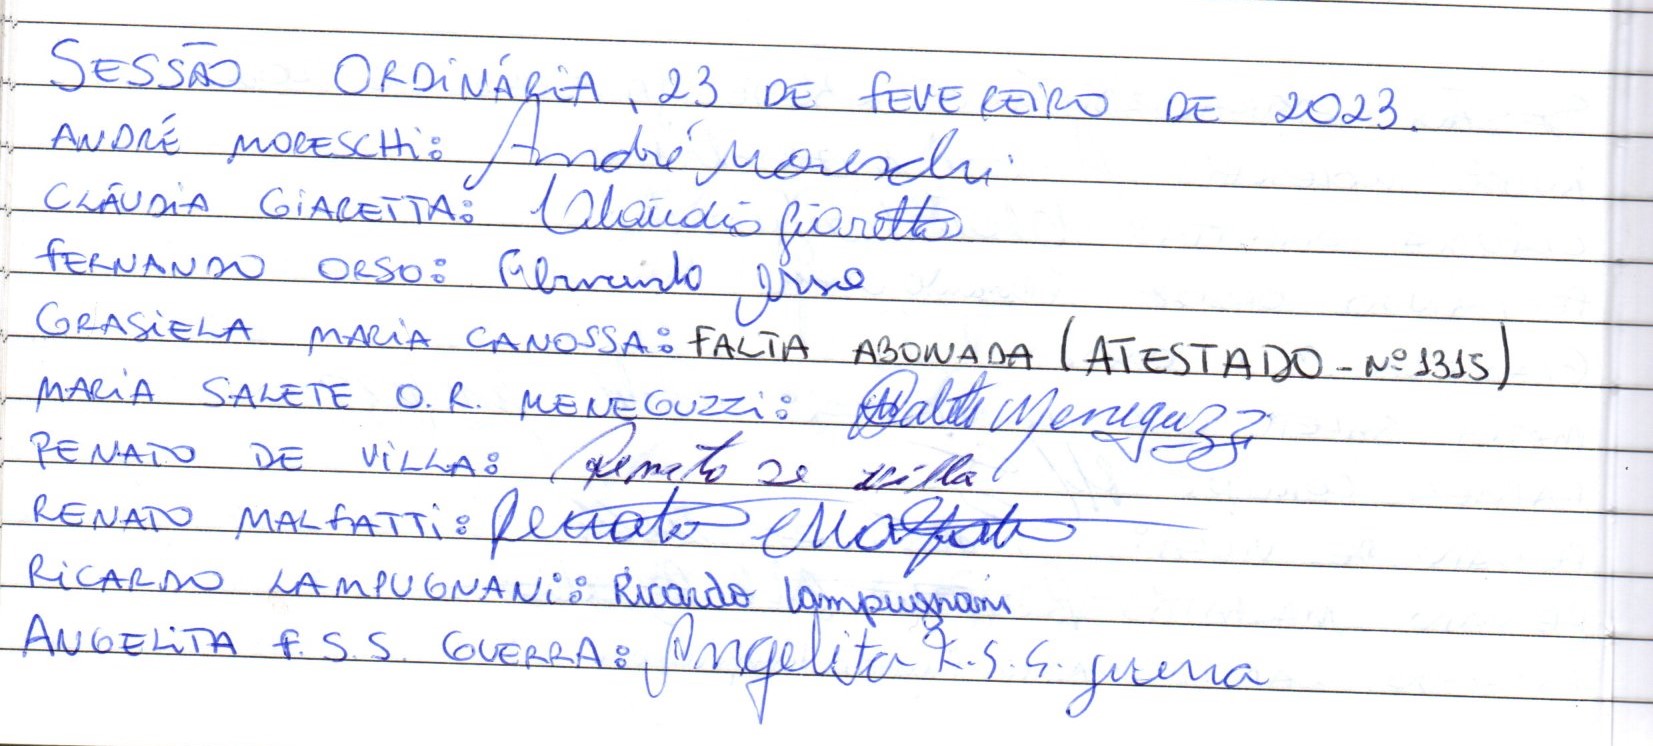 SESSÃO ORDINÁRIA, 23 DE FEVEREIRO DE 2023.
ANDRÉ MORESCHI: André Moreschi
CLÁUDIA GIARETTA: Claudia Giaretta
FERNANDO ORSO: Fernando Orso
GRASIELA MARIA CANOSSA: FALTA ABONADA (ATESTADO - Nº 1315)
MARIA SALETE O. R. MENEGUZZI: Salete Meneguzzi
RENATO DE VILLA: Renato de villa
RENATO MALFATTI: Renato Malfatti
RICARDO LAMPUGNANI: Ricardo Lampugnani
ANGELITA F. S. S. GUERRA: Angelita F. S. S. guerra